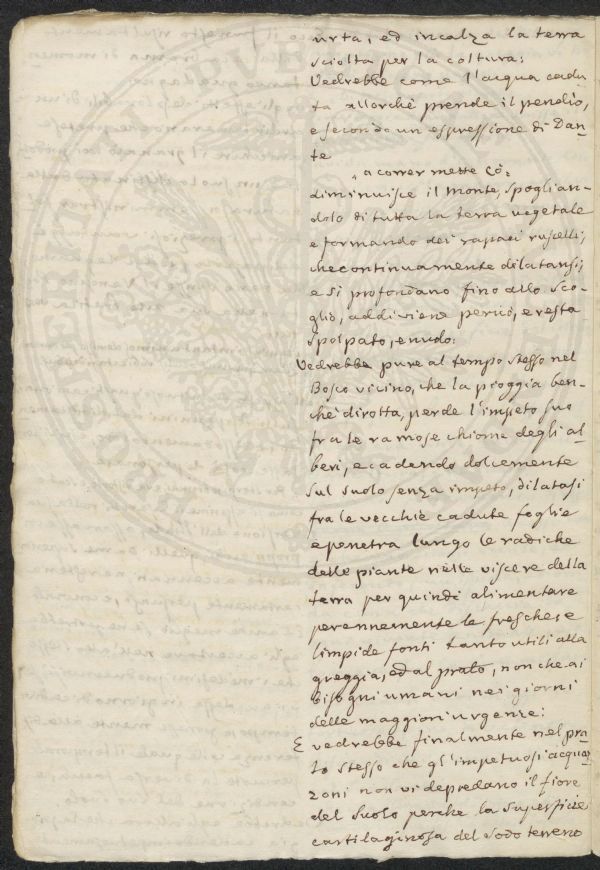 urta, ed incalza la terra
sciolta per la coltura:
Vedrebbe come l'acqua cadu-
ta allorchè prende il pendio,
e secondo un espressione di Dan-
te
" a correr mette cò:
diminuisce il monte, spoglian-
dolo di tutta la terra vegetale
e formando dei rapaci ruscelli,
che continuamente dilatansi,
e si profondano fino allo sco-
glio, addiviene perciò, e resta
spolpato, e nudo:
Vedrebbe pure al tempo stesso nel
Bosco vicino, che la pioggia ben-
che dirotta, perde l'impeto suo
fra le ramose chiome degli al-
beri, e cadendo dolcemente
sul suolo senza impeto, dilatasi
fra le vecchie cadute foglie
e penetra lungo le radiche
delle piante nelle viscere della
terra per quindi alimentare
perennemente le fresche, e
limpide fonti tanto utili alla
greggia, ed al prato, non che ai
bisogni umani nei giorni
delle maggiori urgenze:
E vedrebbe finalmente nel pra-
to stesso che gl'impetuosi acquaz-
zoni non vi depredano il fiore
del suolo perche la superficie
cartilaginosa del sodo terreno